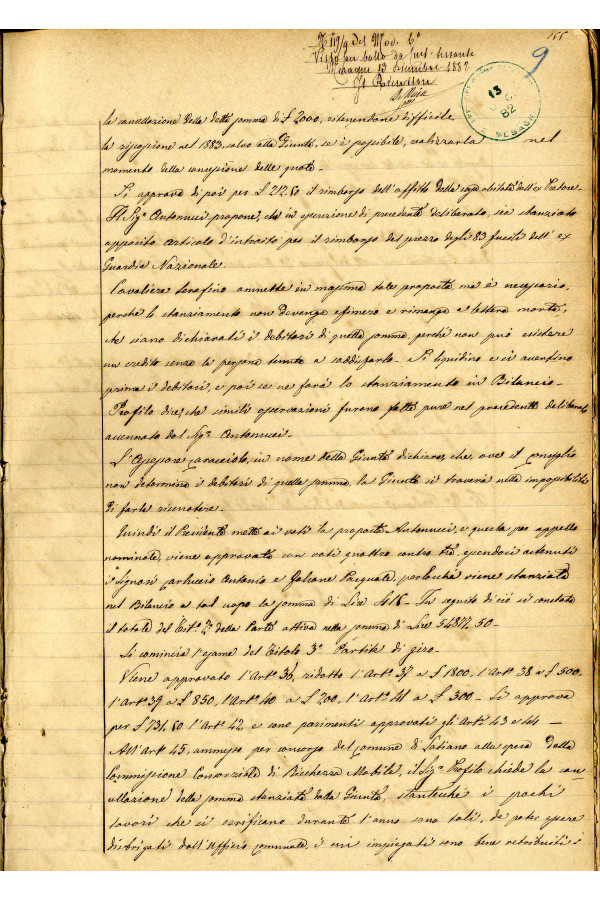 155
N. 119/9 del Mod. 6°
Visto per bollo da
Mesagne 13 Dicembre 1882
Il Ricevitore
9
13
82
MESAGNE
la cancellazione della detta somma di £ 2000, ritenendone difficile
la riscossione nel 1883, salvo alla Giunta, se è possibile, realizzarla nel
momento della concessione delle quote.
Si approva di poi per £ 212.50 il rimborso dell'affitto della casa abitata dall'ex Pretore.
Il Sig.r Antonucci propone, che in esecuzione di precedente deliberato, sia stanziato
apposito articolo d'introito per il rimborso del prezzo degli 83 fucili dell'ex
Guardia Nazionale.
Cavaliere Serafino ammette in massima tale proposta ma è necessario,
perché lo stanziamento non divenga efimero e rimanga a lettera morta,
che siano dichiarati i debitori di quella somma, perché non può esistere
un credito senza la persona tenuta a soddisfarlo. Si liquidino e si accertino
prima i debitori, e poi se ne farà lo stanziamento in Bilancio.
Profilo dice, che simili osservazioni furono fatte pure nel precedente deliberato
accennato dal Sig.r Antonucci.
L'Assessore Caracciolo, in nome della Giunta dichiara, che, ove il Consiglio
non determina i debitori di quella somma, la Giunta si troverà nella impossibilità
di farla riscuotere.
Quindi il Presidente mette ai voti la proposta Antonucci, e questa per appello
nominale, viene approvata con voti quattro contro tre, essendosi astenuti
i Signori Carluccio Antonio e Galeone Pasquale, perlocchè viene stanziata
nel Bilancio a tal uopo la somma di Lire 415. In seguito di ciò si constata
il totale del Tit.° 2° della Parte attiva nella somma di Lire 54877,50.
Si comincia l'esame del Titolo 3° Partite di giro.
Viene approvato l'Art.° 36, ridotto l'Art.° 37 a £ 1800, l'Art.° 38 a £ 500,
l'Art.° 39 a £ 850, l'Art.° 40 a £ 200, l'Art.° 41 a £ 300. Si approva
per £ 731,50 l'Art.° 42, e sono parimenti approvati gli Art.i 43 e 44.
All'Art.° 45, ammesso per concorso del Comune di Latiano alla spesa della
Commissione Consorziale di Ricchezza Mobile, il Sig.r Profilo chiede la can-
cellazione della somma stanziata dalla Giunta, stantechè i pochi
lavori che si verificano durante l'anno sono tali, da poter essere
disbrigati dall'Ufficio comunale, i cui impiegati sono bene retribuiti